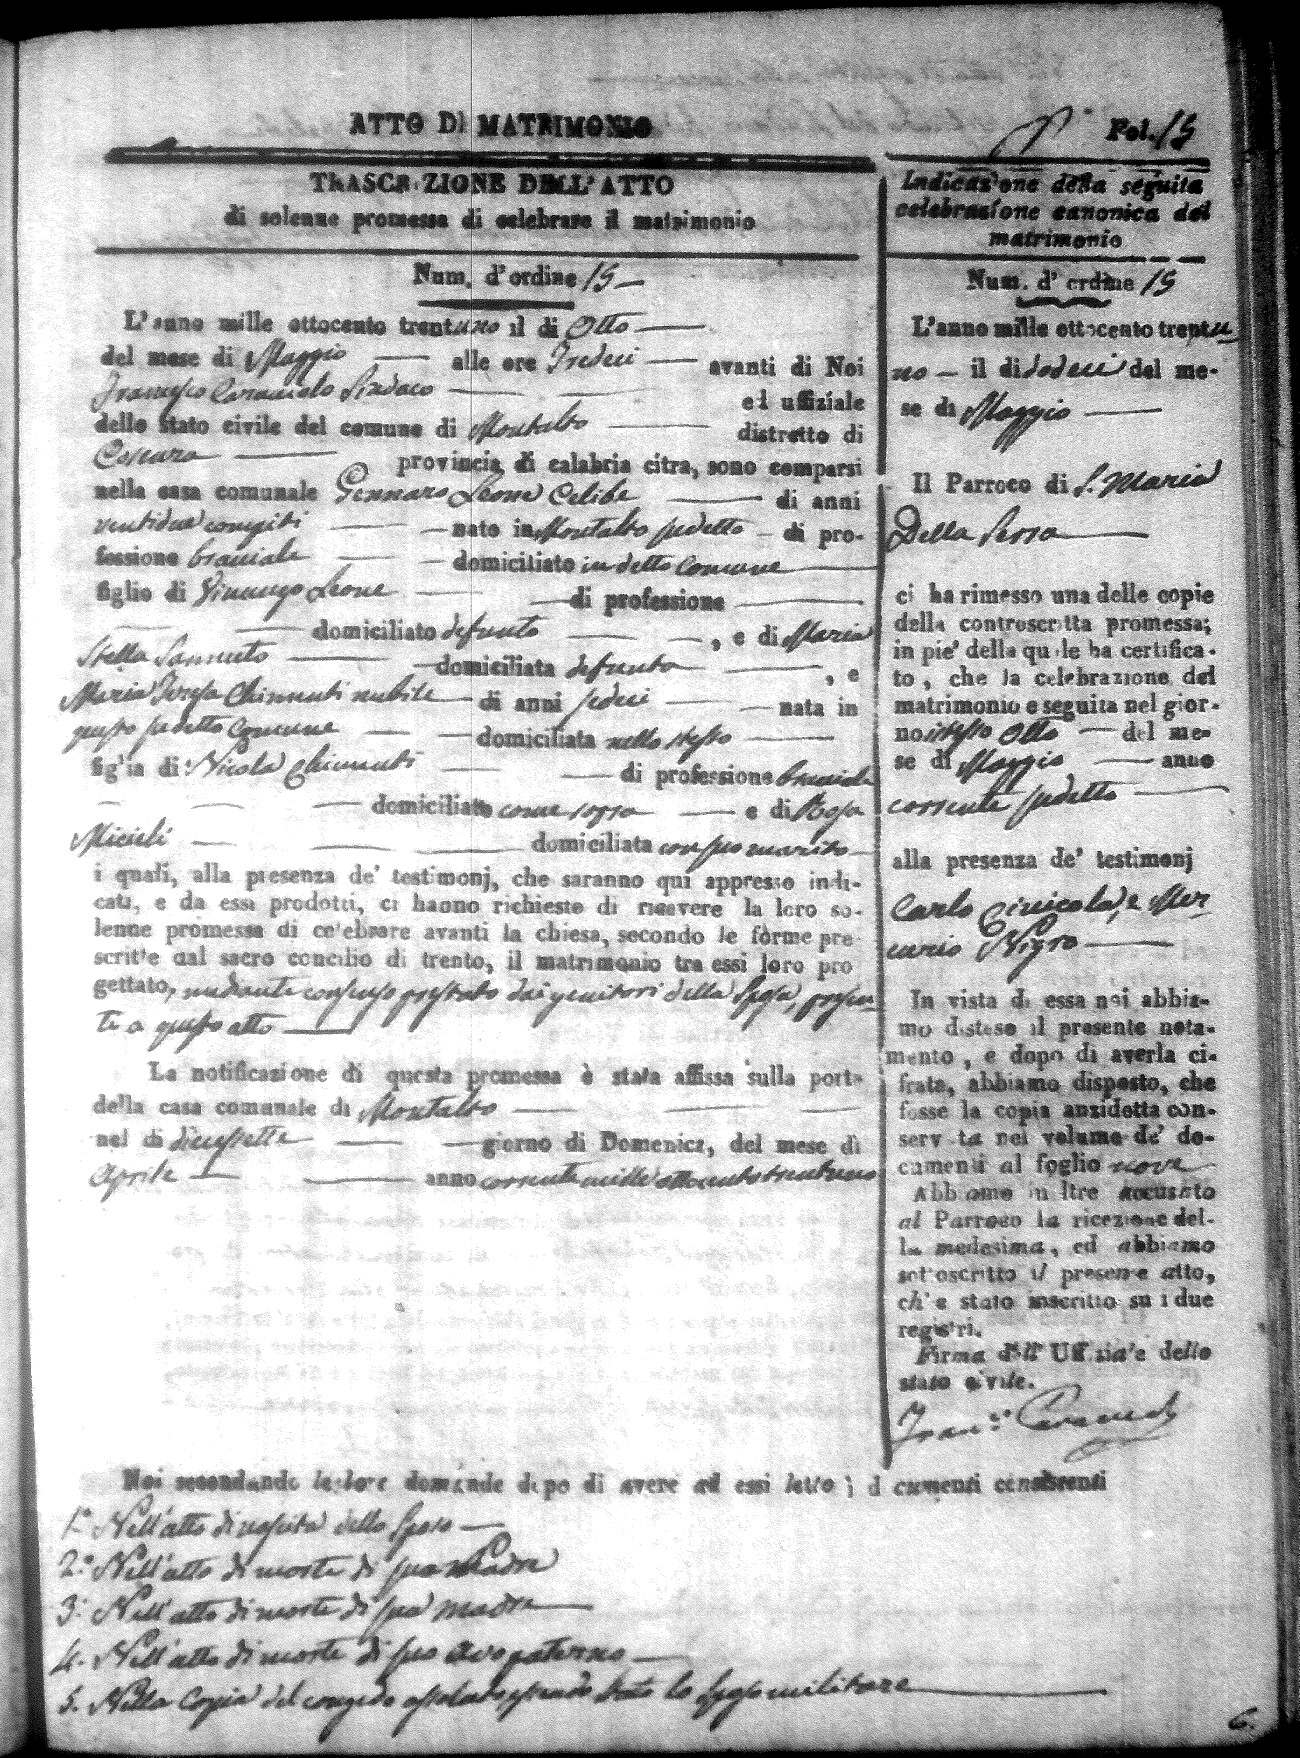 ATTO DI MATRIMONIO
Fol. 15
TRASCRIZIONE DELL'ATTO
di solenne promessa di celebrare il matrimonio
Num. d'ordine 15
L'anno mille ottocento trentuno il di Otto
del mese di Maggio alle ore Tredeci avanti di Noi
Francesco Sindaco ed uffiziale
dello stato civile del comune di Montalto distretto di
Cosenza provincia di calabria citra, sono comparsi
nella casa comunale Gennaro Leone Celibe di anni
ventidue compiti nato in Montalto sudetto di pro-
fessione bracciale domiciliato in detto Comune
figlio di Vincenzo Leone di professione
domiciliato defunto, e di Maria
Stella domiciliata defunta, e
Maria Teresa Chimenti nubile di anni sedeci nata in
questo sudetto Comune domiciliata nello stesso
figlia di Nicola Chimenti di professione bracciale
domiciliato come sopra e di Rosa
Miceli domiciliata con suo marito
i quali, alla presenza de' testimonj, che saranno qui appresso indi-
cati, e da essi prodotti, ci hanno richiesto di ricevere la loro so-
lenne promessa di celebrare avanti la chiesa, secondo le forme pre
scritte dal sacro concilio di trento, il matrimonio tra essi loro pro
gettato, mediante consenso prestato dai genitori della Sposa, presen-
ti a questo atto
La notificazione di questa promessa è stata affissa sulla porta
della casa comunale di Montalto
nel di diecisette giorno di Domenica, del mese di
Aprile anno corrente mille ottocento trentuno
Indicazione della seguita
celebrazione canonica del
matrimonio
Num. d'ordine 15
L'anno mille ottocento trentu-
no il di dodeci del me-
se di Maggio
Il Parroco di S. Maria
Della Serra
ci ha rimesso una delle copie
della controscritta promessa;
in pie' della quale ha certifica-
to, che la celebrazione del
matrimonio e seguita nel gior-
no istesso Otto del me-
se di Maggio anno
corrente sudetto
alla presenza de' testimonj
Carlo , e Mer-
curio Nigro
In vista di essa noi abbia-
mo disteso il presente nota-
mento, e dopo di averla ci-
frata, abbiamo disposto, che
fosse la copia anzidetta con-
servata nel volume de' do-
cumenti al foglio nove
Abbiamo inoltre accusato
al Parroco la ricezione del-
la medesima, ed abbiamo
sottoscritto il presente atto,
ch'e stato inscritto su i due
registri.
Firma dell' Uffiziale dello
stato civile.
Noi secondando le loro domande dopo di avere ad essi letto i documenti consistenti
1.° Nell'atto di nascita dello Sposo
2.° Nell'atto di morte di suo Padre
3.° Nell'atto di morte di sua madre
4. Nell'atto di morte di suo avo paterno
5. Nella Copia del congedo assoluto, essendo stato lo Sposo militare
6.